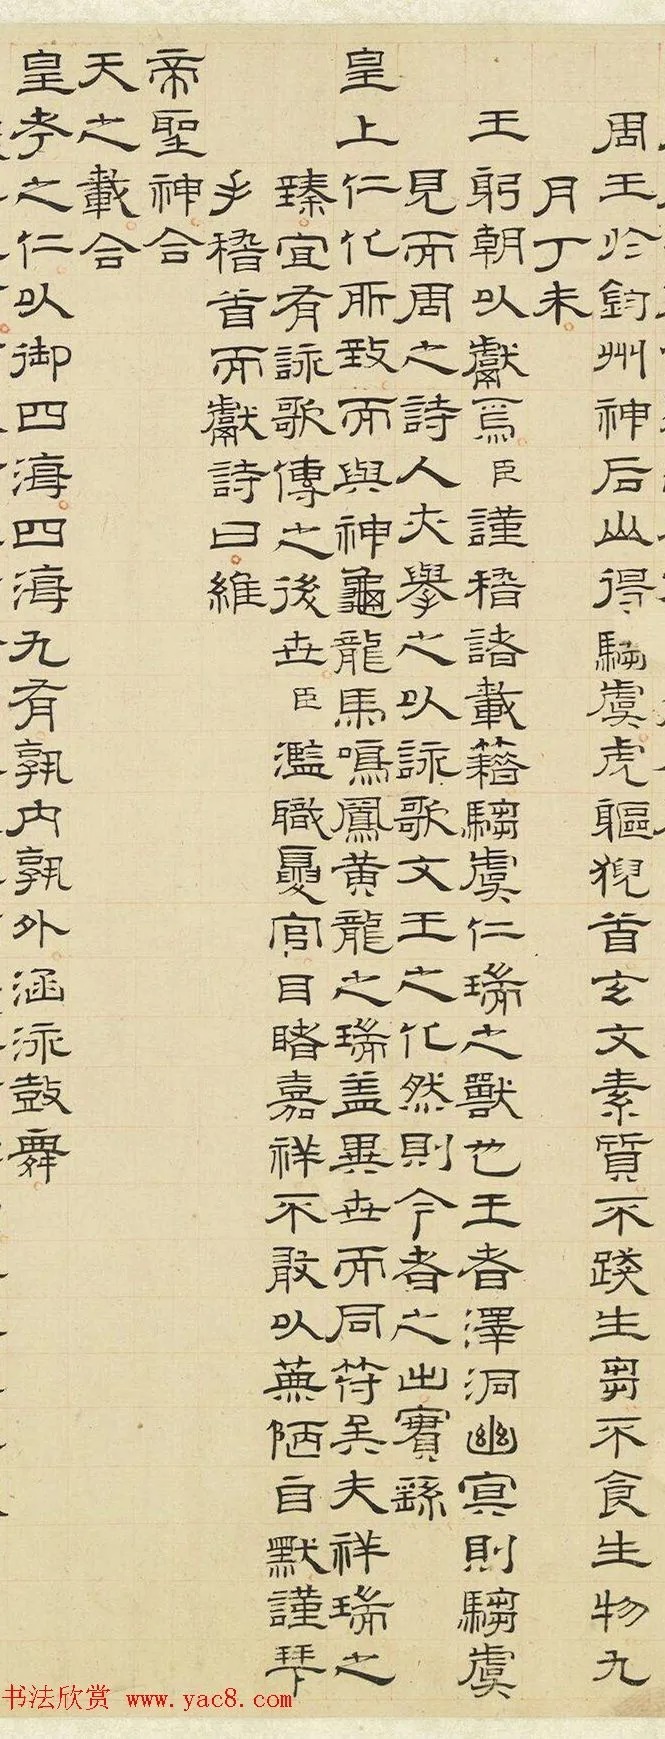 周王於鈞州神后山得騶虞虎軀猊首玄文素質不踐生芻不食生物九
月丁未
王躬朝以獻焉臣謹稽諸載籍騶虞仁瑞之獸也王者澤洞幽冥則騶虞
見而周之詩人夫舉之以詠歌文王之化然則今者之出實繇
皇上仁化所致而與神龜龍馬鳴鳳黃龍之瑞蓋異世而同符矣夫祥瑞之
臻宜有詠歌傳之後世臣濫職夏官目睹嘉祥不敢以蕪陋自默謹拜
手稽首而獻詩曰維
帝聖神合
天之載合
皇考之仁以御四海四海九有孰內孰外涵泳鼓舞
书法欣赏 www.yac8.com